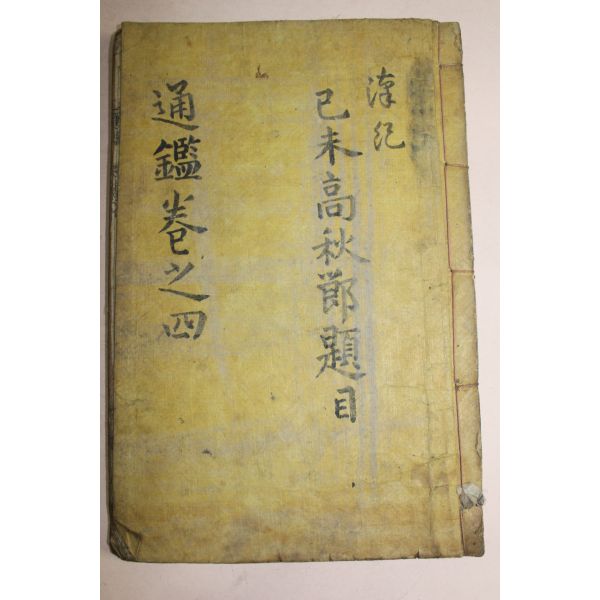 漢紀
己未高秋節題目
通鑑卷之四